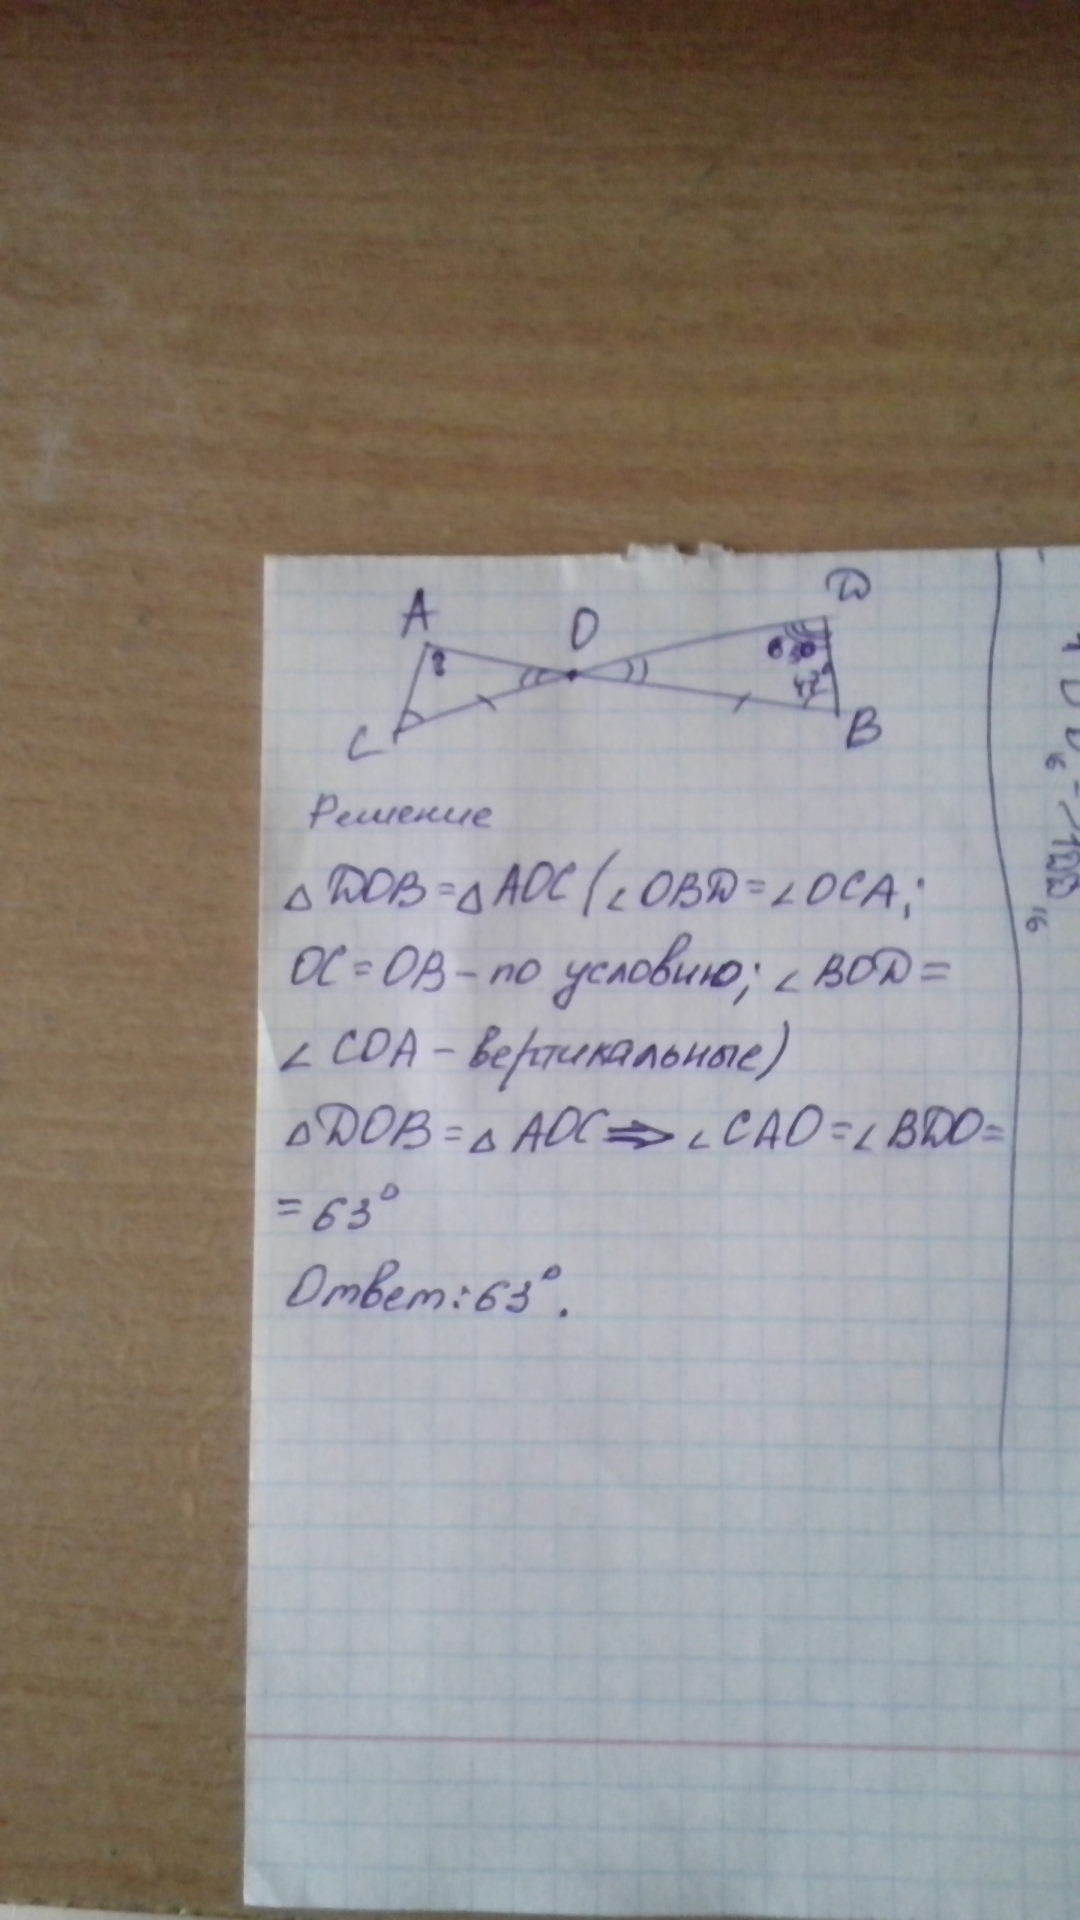 A
O
D
?
63°
47°
C
B
Решение
△DOB = △AOC (∠OBD = ∠OCA;
OC = OB – по условию; ∠BOD =
∠COA – вертикальные)
△DOB = △AOC ⇒ ∠CAO = ∠BDO =
= 63°
Ответ: 63°.